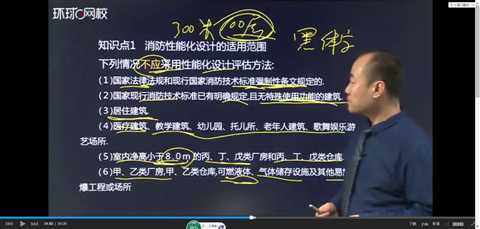 环球网校
300米 100层
黑体字
知识点1 消防性能化设计的适用范围
下列情况不应采用性能化设计评估方法:
(1)国家法律法规和现行国家消防技术标准强制性条文规定的.
(2)国家现行消防技术标准已有明确规定,且无特殊使用功能的建筑.
(3)居住建筑.
(4)医疗建筑、教学建筑、幼儿园、托儿所、老年人建筑、歌舞娱乐游
艺场所.
(5)室内净高小于8.0m的丙、丁、戊类厂房和丙、丁、戊类仓库
(6)甲、乙类厂房,甲、乙类仓库,可燃液体、气体储存设施及其他易
爆工程或场所